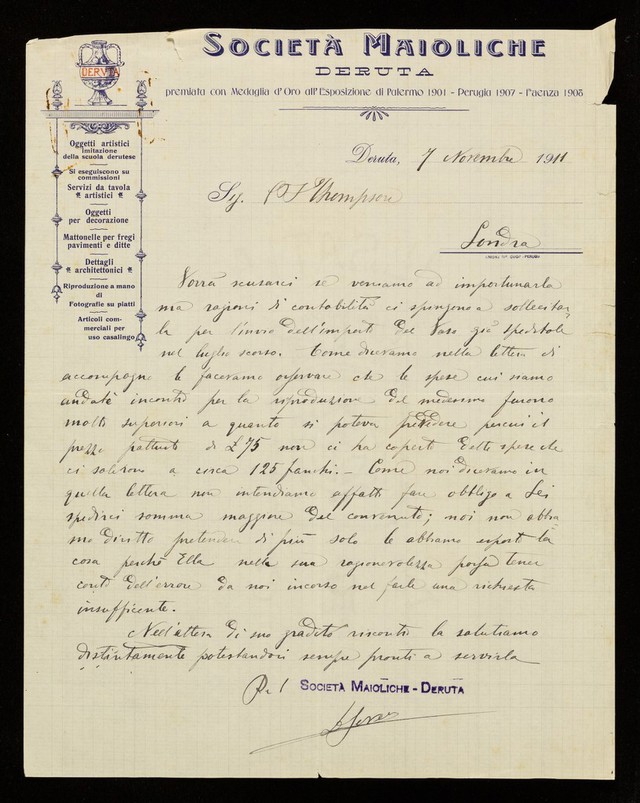 SOCIETÀ MAIOLICHE
DERUTA
premiata con Medaglia d'Oro all'Esposizione di Palermo 1901 - Perugia 1907 - Faenza 1908
DERUTA
Oggetti artistici
imitazione
della scuola derutese
Si eseguiscono su
commissioni
Servizi da tavola
artistici
Oggetti
per decorazione
Mattonelle per fregi
pavimenti e ditte
Dettagli
architettonici
Riproduzione a mano
di
Fotografie su piatti
Articoli com-
merciali per
uso casalingo
Deruta, 7 Novembre 1911
Sig. Thompson
Londra
Vorrà scusarci se veniamo ad importunarla
ma ragioni di contabilità ci spingono a sollecitar
la per l'invio dell'importo del Vaso già speditole
nel luglio scorso. Come dicevamo nella lettera di
accompagno le facevamo osservare che le spese cui siamo
andati incontro per la riproduzione del medesimo furono
molto superiori a quanto si poteva prevedere percui il
prezzo pattuito di £ 75 non ci ha coperti dette spese che
ci salirono a circa 125 franchi. - Come noi dicevamo in
quella lettera non intendiamo affatto fare obbligo a Lei
spedirci somma maggiore del convenuto; noi non abbia
mo diritto pretendere di più solo le abbiamo esposto la
cosa perchè Ella nella sua ragionevolezza possa tener
conto dell'errore da noi incorso nel farle una richiesta
insufficente.
Nell'attesa di suo gradito riscontro la salutiamo
distintamente potestandoci sempre pronti a servirla
SOCIETÀ MAIOLICHE - DERUTA